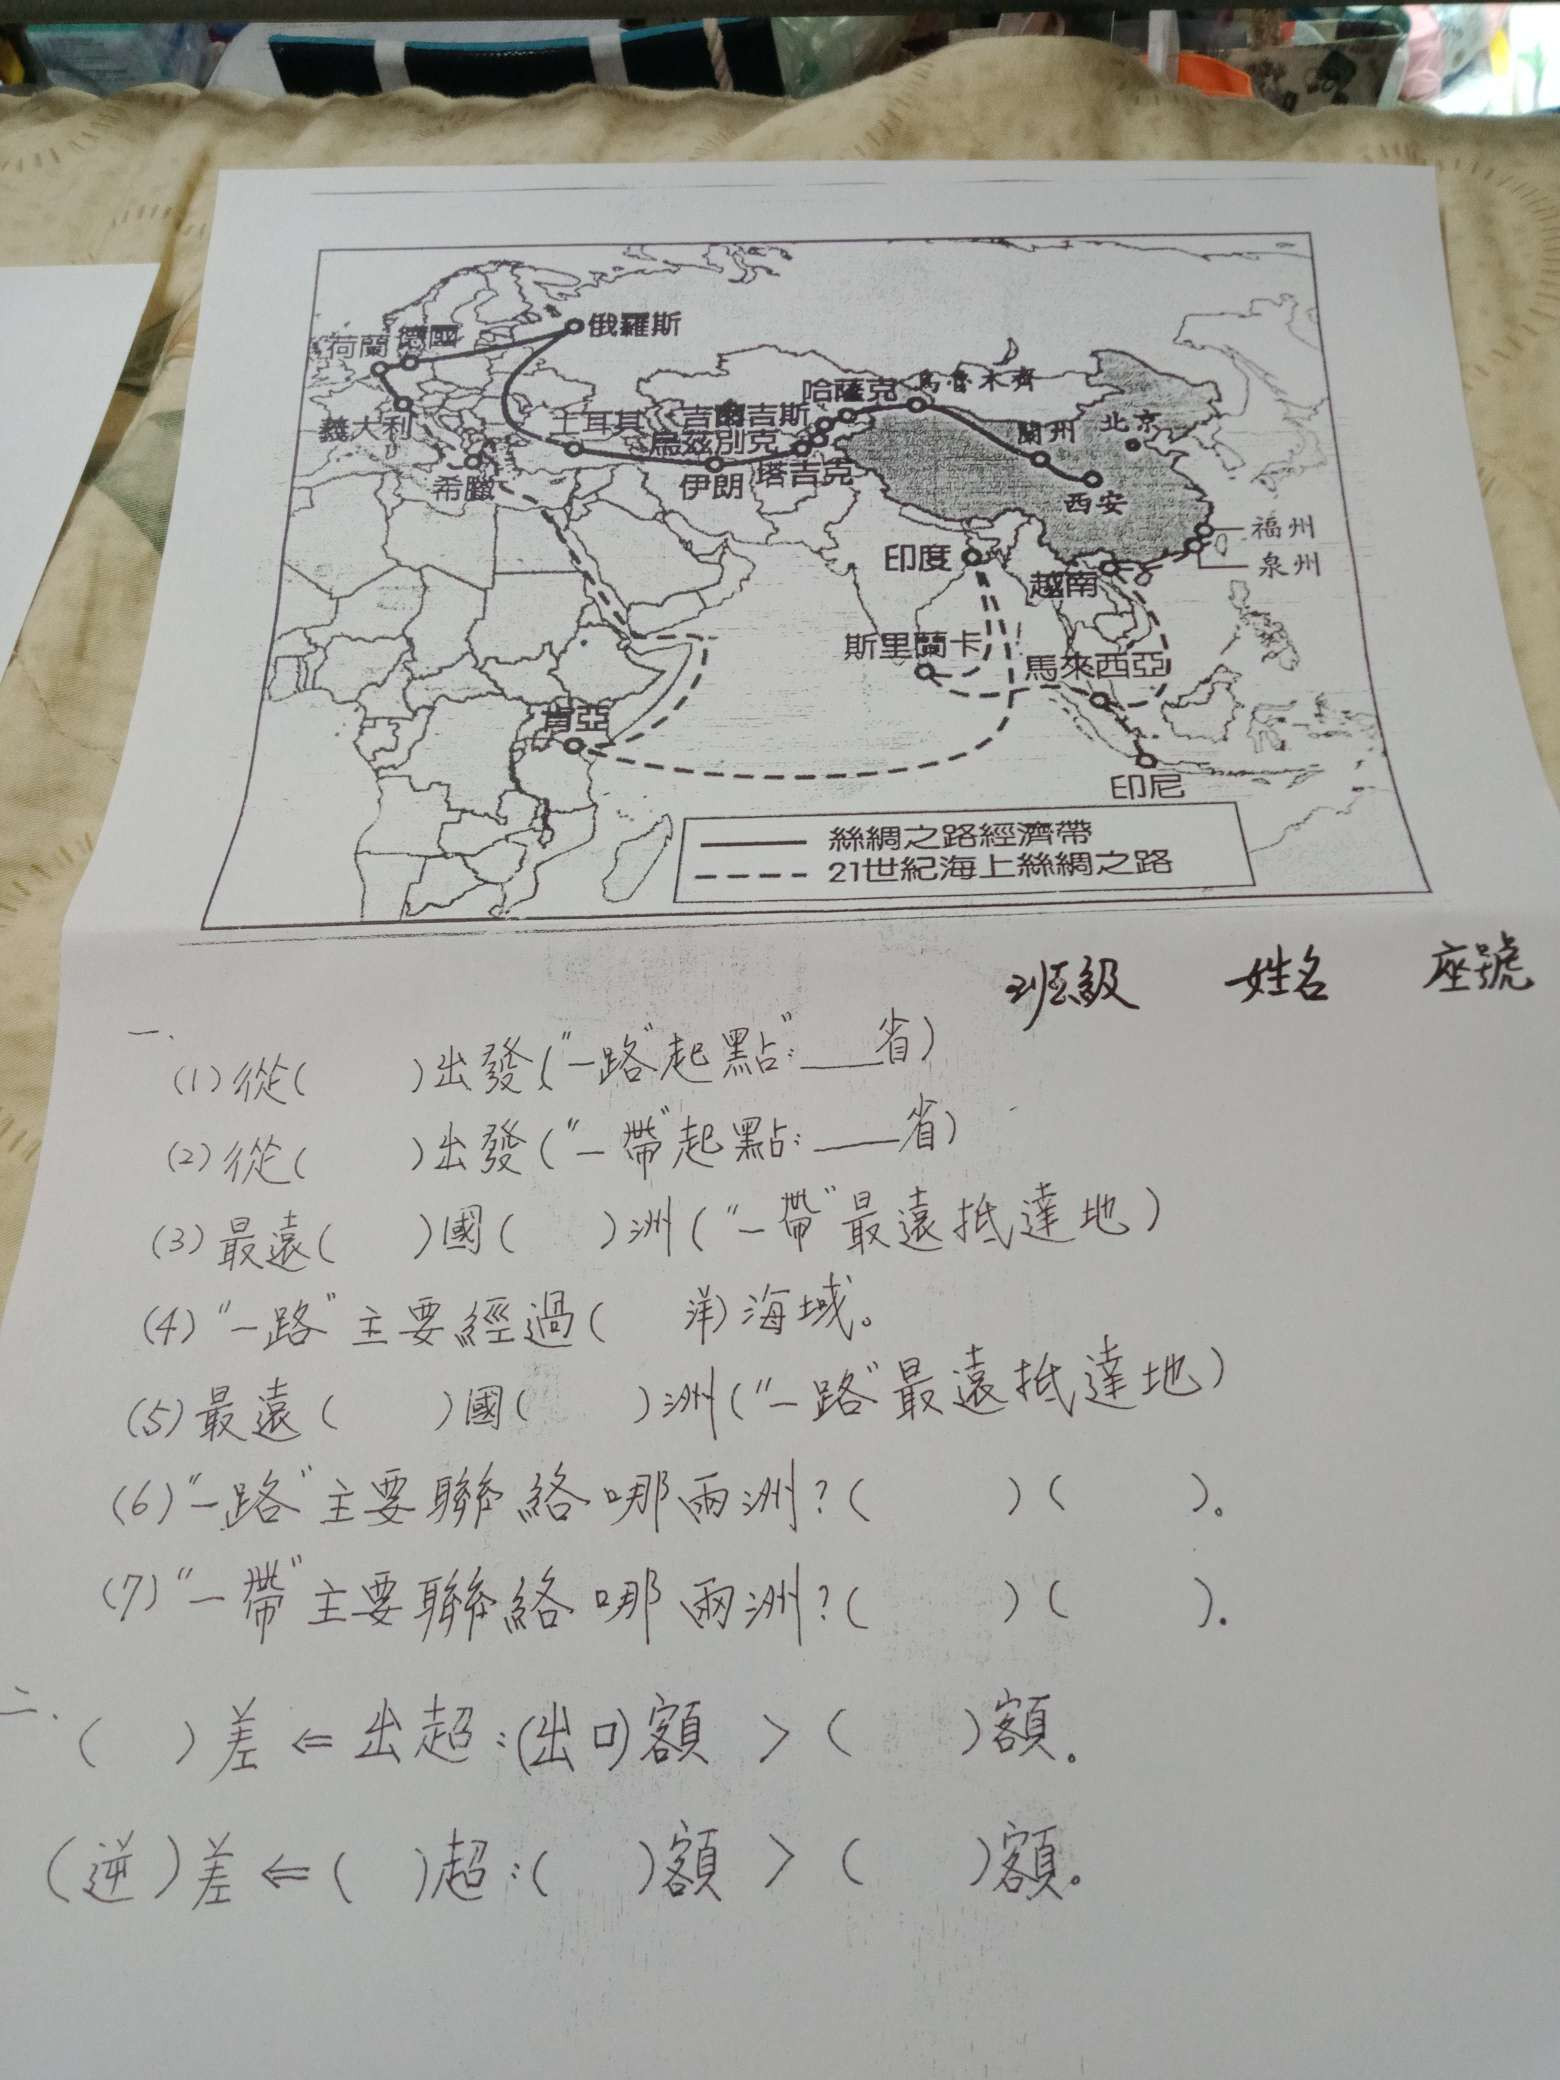 俄羅斯
荷蘭 德國
哈薩克 烏魯木齊
義大利 土耳其 吉爾吉斯 蘭州 北京
烏茲別克
希臘 伊朗 塔吉克 西安
福州
印度 越南 泉州
斯里蘭卡 馬來西亞
肯亞
印尼
絲綢之路經濟帶
21世紀海上絲綢之路
班級 姓名 座號
一、
(1)從( )出發("一路"起點:___省)
(2)從( )出發("一帶"起點:___省)
(3)最遠( )國( )洲("一帶"最遠抵達地)
(4)"一路"主要經過( 洋)海域。
(5)最遠( )國( )洲("一路"最遠抵達地)
(6)"一路"主要聯絡哪兩洲?( )( )。
(7)"一帶"主要聯絡哪兩洲?( )( ).
二、
( )差⇐出超:(出口)額 > ( )額。
(逆)差⇐( )超:( )額 > ( )額。